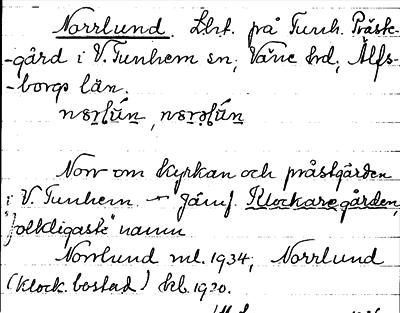 Norrlund. Lht. på Tunh. Präst-
-gård i V. Tunhem sn, Väne hd, Älfs-
-borgs län.
Norr om kyrkan och prästgården
i V. Tunhem. - Jämf. Klockaregården,
"folkligaste" namn
Norrlund ml. 1934; Norrlund
(Klock. bostad) kb. 1920.